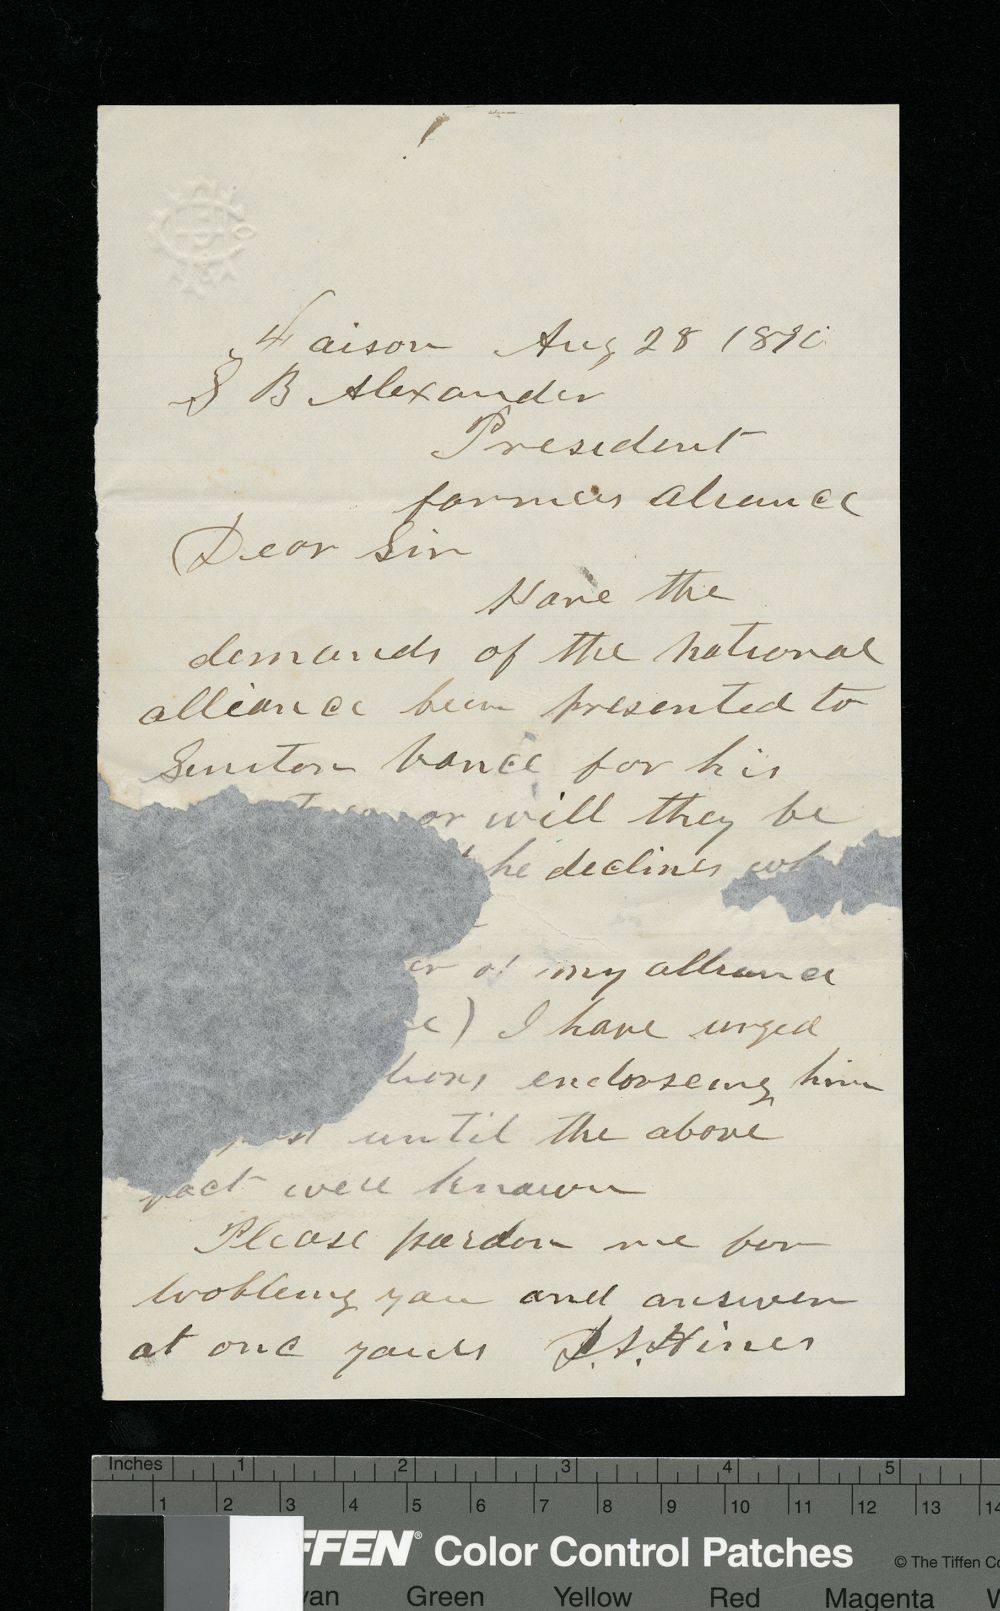 Faison Aug 28 1890
S B Alexander
President
farmers aliance
Dear Sir
Have the
demands of the national
alliance been presented to
Senator Vance for his
or will they be
he declines
er of my alliance
I have urged
tions endorseing him
until the above
fact well known
Please pardon me for
trobleing you and answer
at once yours I. S. Hines
Inches 1 2 3 4 5
1 2 3 4 5 6 7 8 9 10 11 12 13 14
FFEN® Color Control Patches © The Tiffen Co
yan Green Yellow Red Magenta W